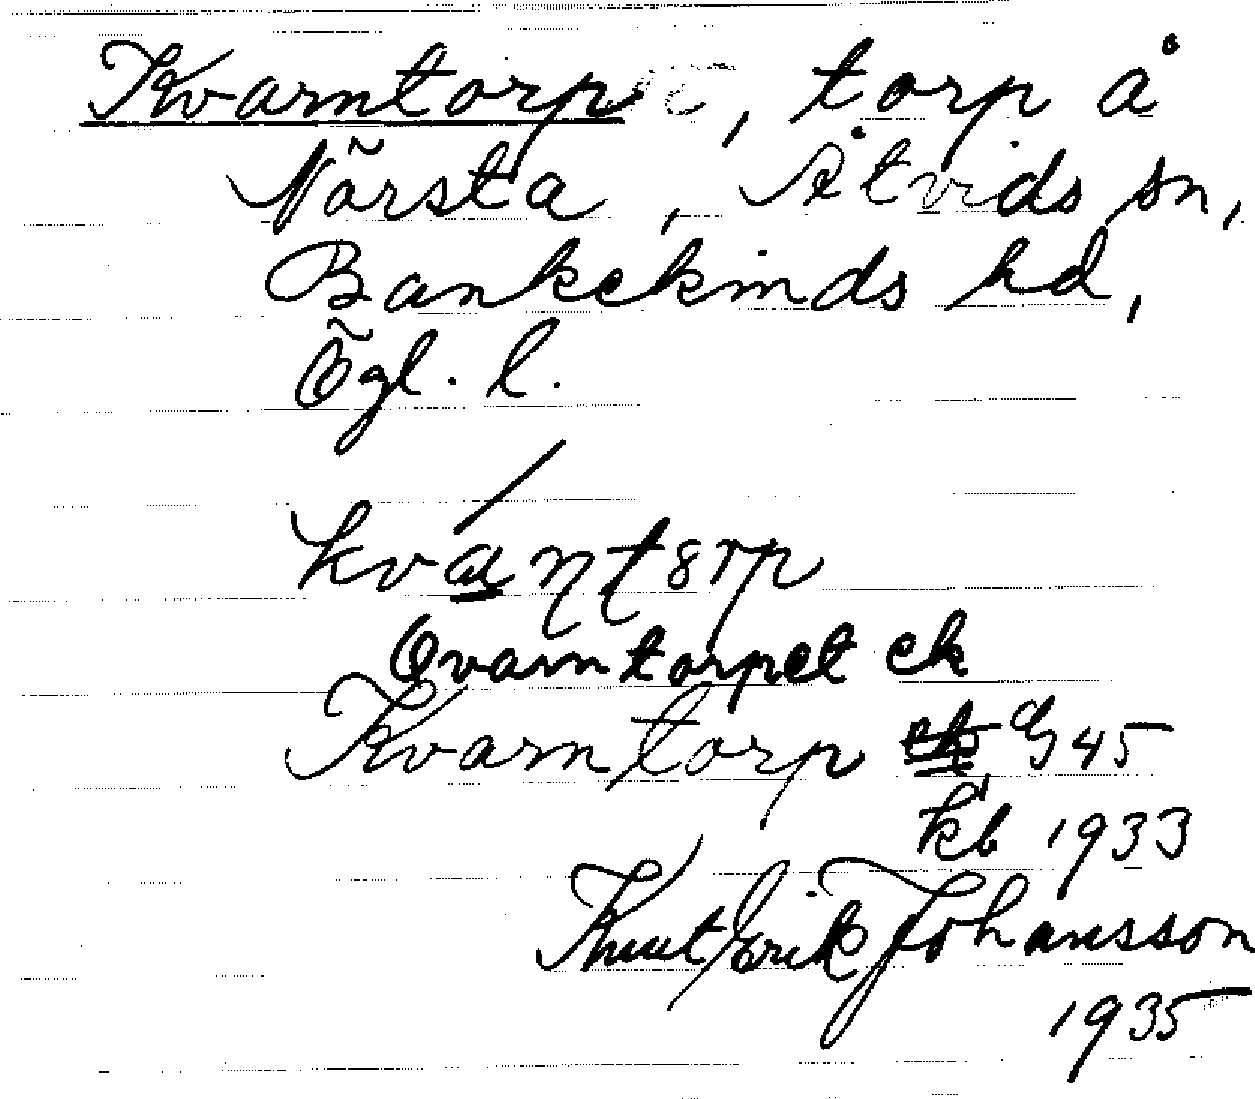 Kvarntorp, torp å
Nörsta, Åtvids sn,
Bankekinds hd,
Ögl. l.
Qvarntorpet ek
Kvarntorp G 45
kb 1933
Knut Erik Johansson
1935